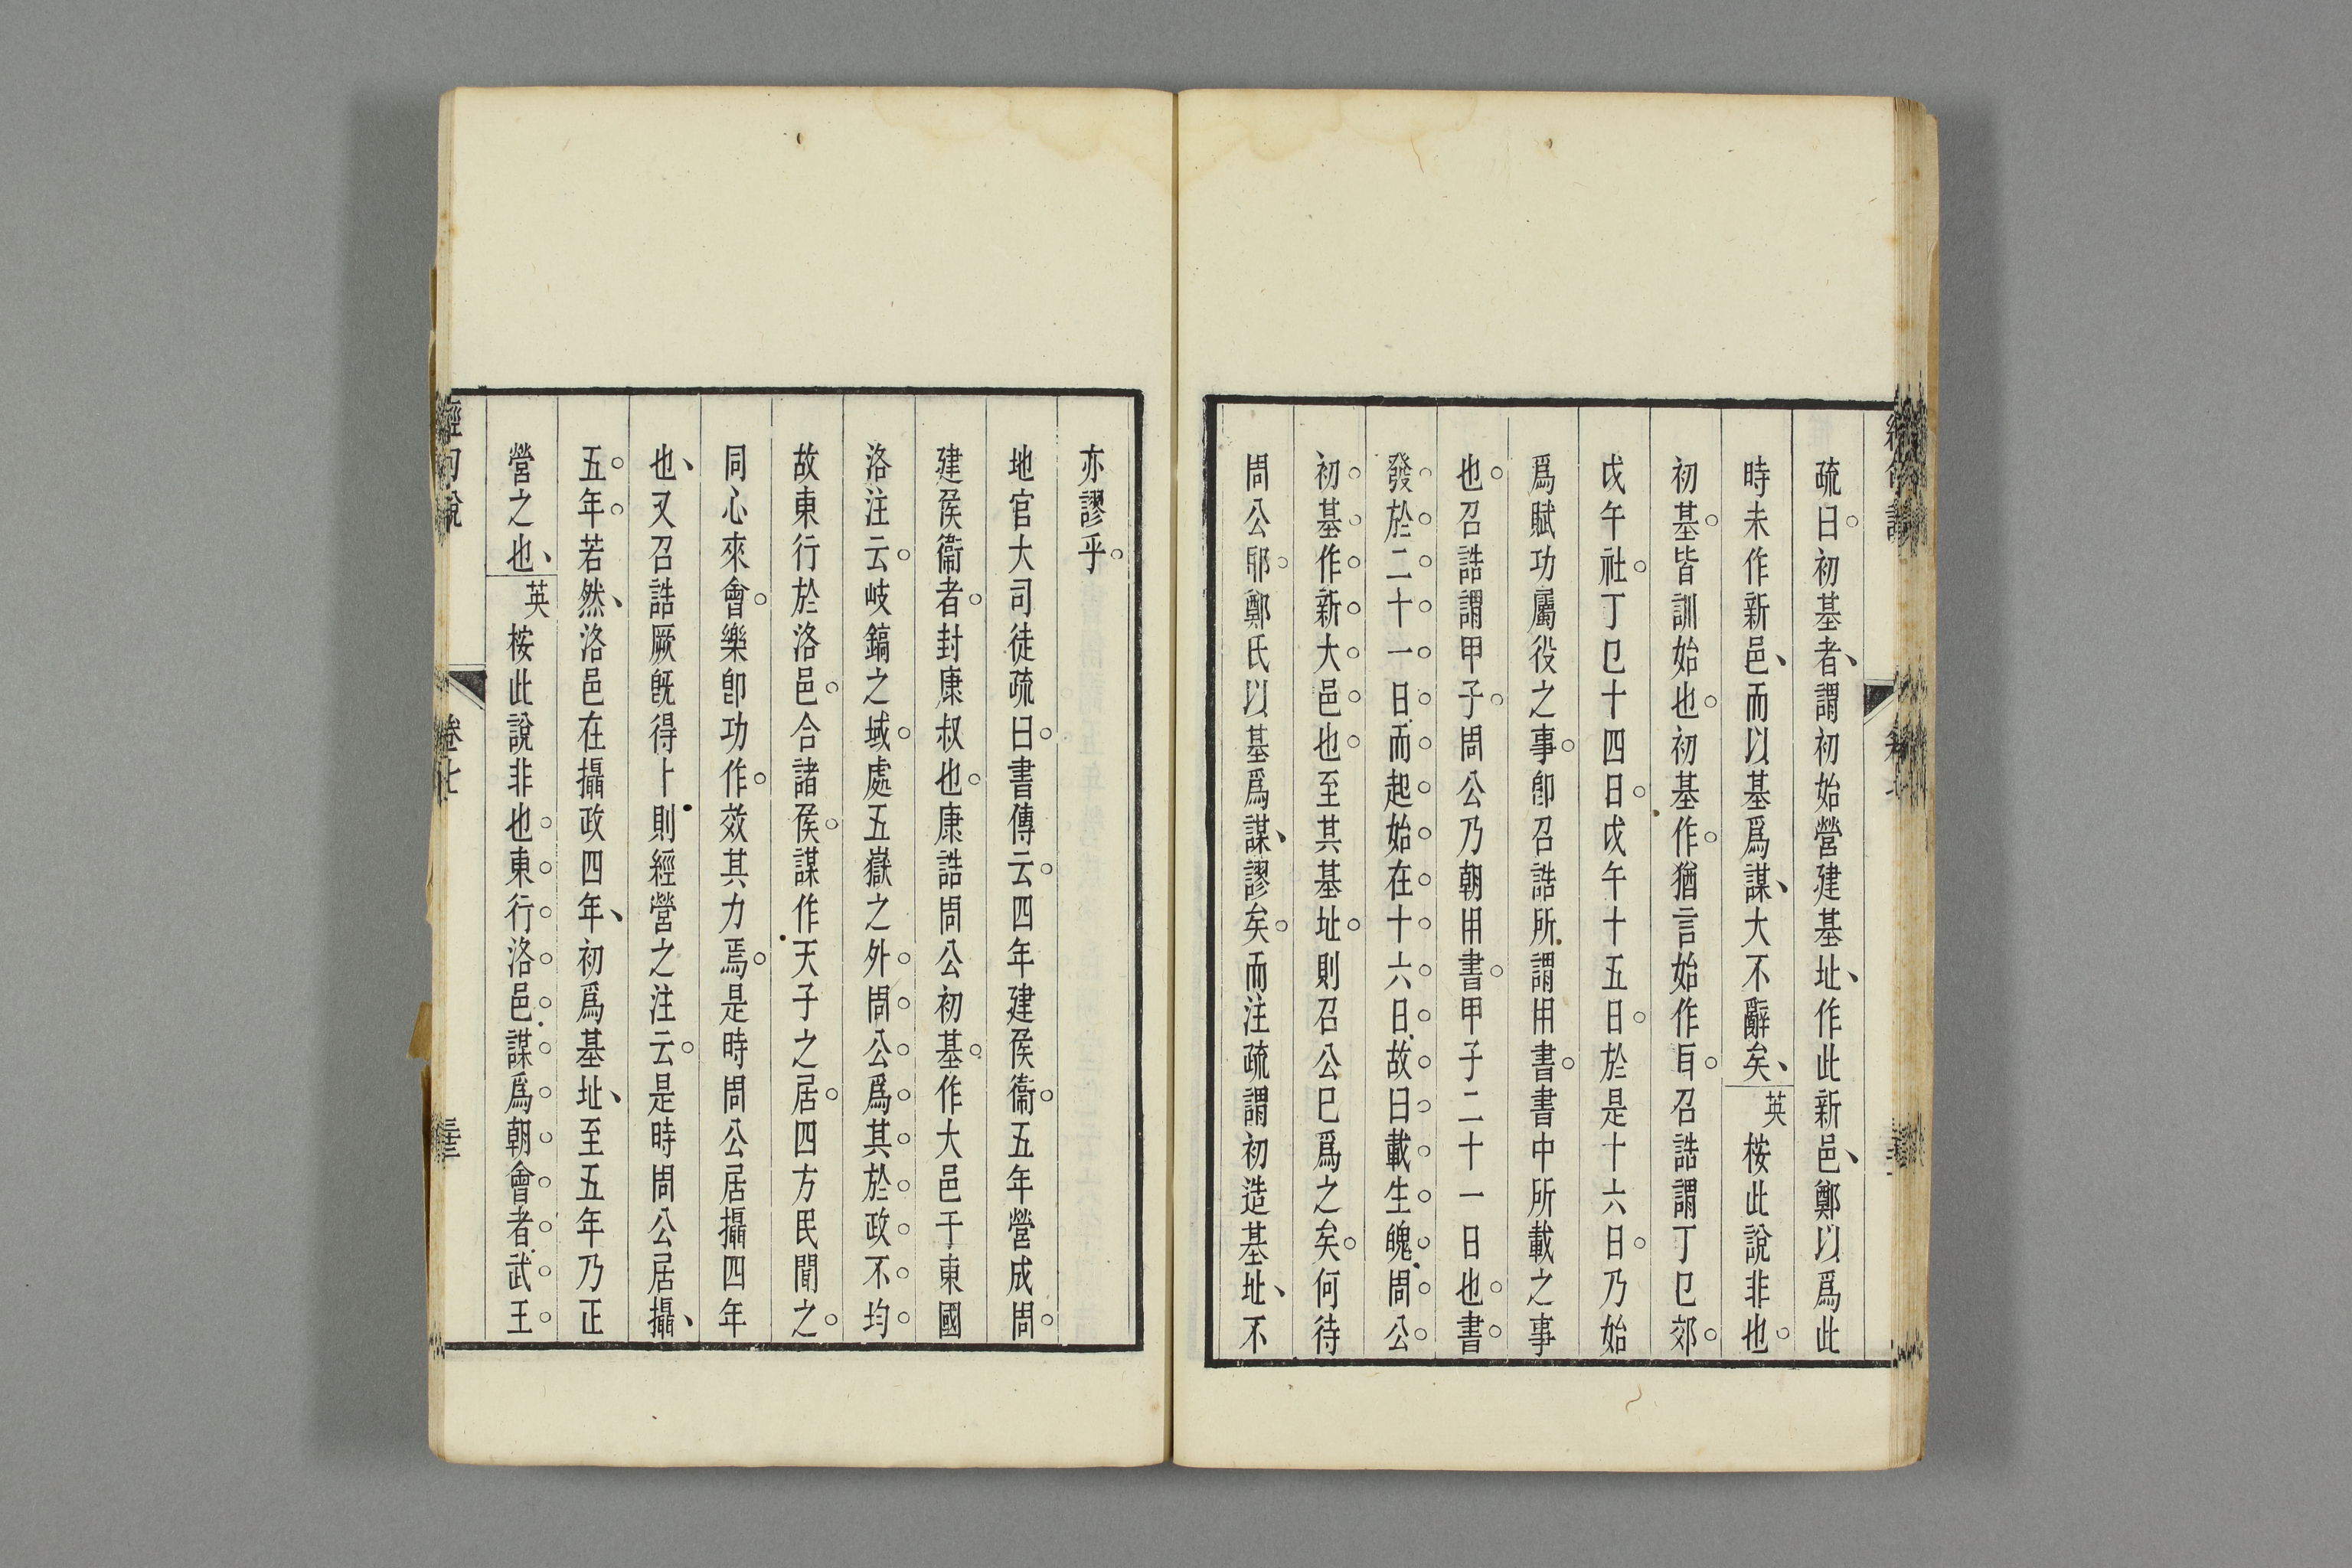 疏曰初基者謂初始營建基址作此新邑鄭以爲此
時未作新邑而以基爲謀大不辭矣英桉此說非也
初基皆訓始也初基作猶言始作㫖召誥謂丁巳郊
戊午社丁巳十四日戊午十五日於是十六日乃始
爲賦功屬役之事卽召誥所謂用書書中所載之事
也召誥謂甲子周公乃朝用書甲子二十一日也書
發於二十一日而起始在十六日故曰載生魄周公
初基作新大邑也至其基址則召公巳爲之矣何待
周公耶鄭氏以基爲謀謬矣而注疏謂初造基址不
亦謬乎
地官大司徒疏曰書傳云四年建侯衞五年營成周
建侯衞者封康叔也康誥周公初基作大邑于東國
洛注云岐鎬之域處五嶽之外周公爲其於政不均
故東行於洛邑合諸侯謀作天子之居四方民聞之
同心來會樂卽功作效其力焉是時周公居攝四年
也又召誥厥旣得卜則經營之注云是時周公居攝
五年若然洛邑在攝政四年初爲基址至五年乃正
營之也英桉此說非也東行洛邑謀爲朝會者武王
經句說
卷七